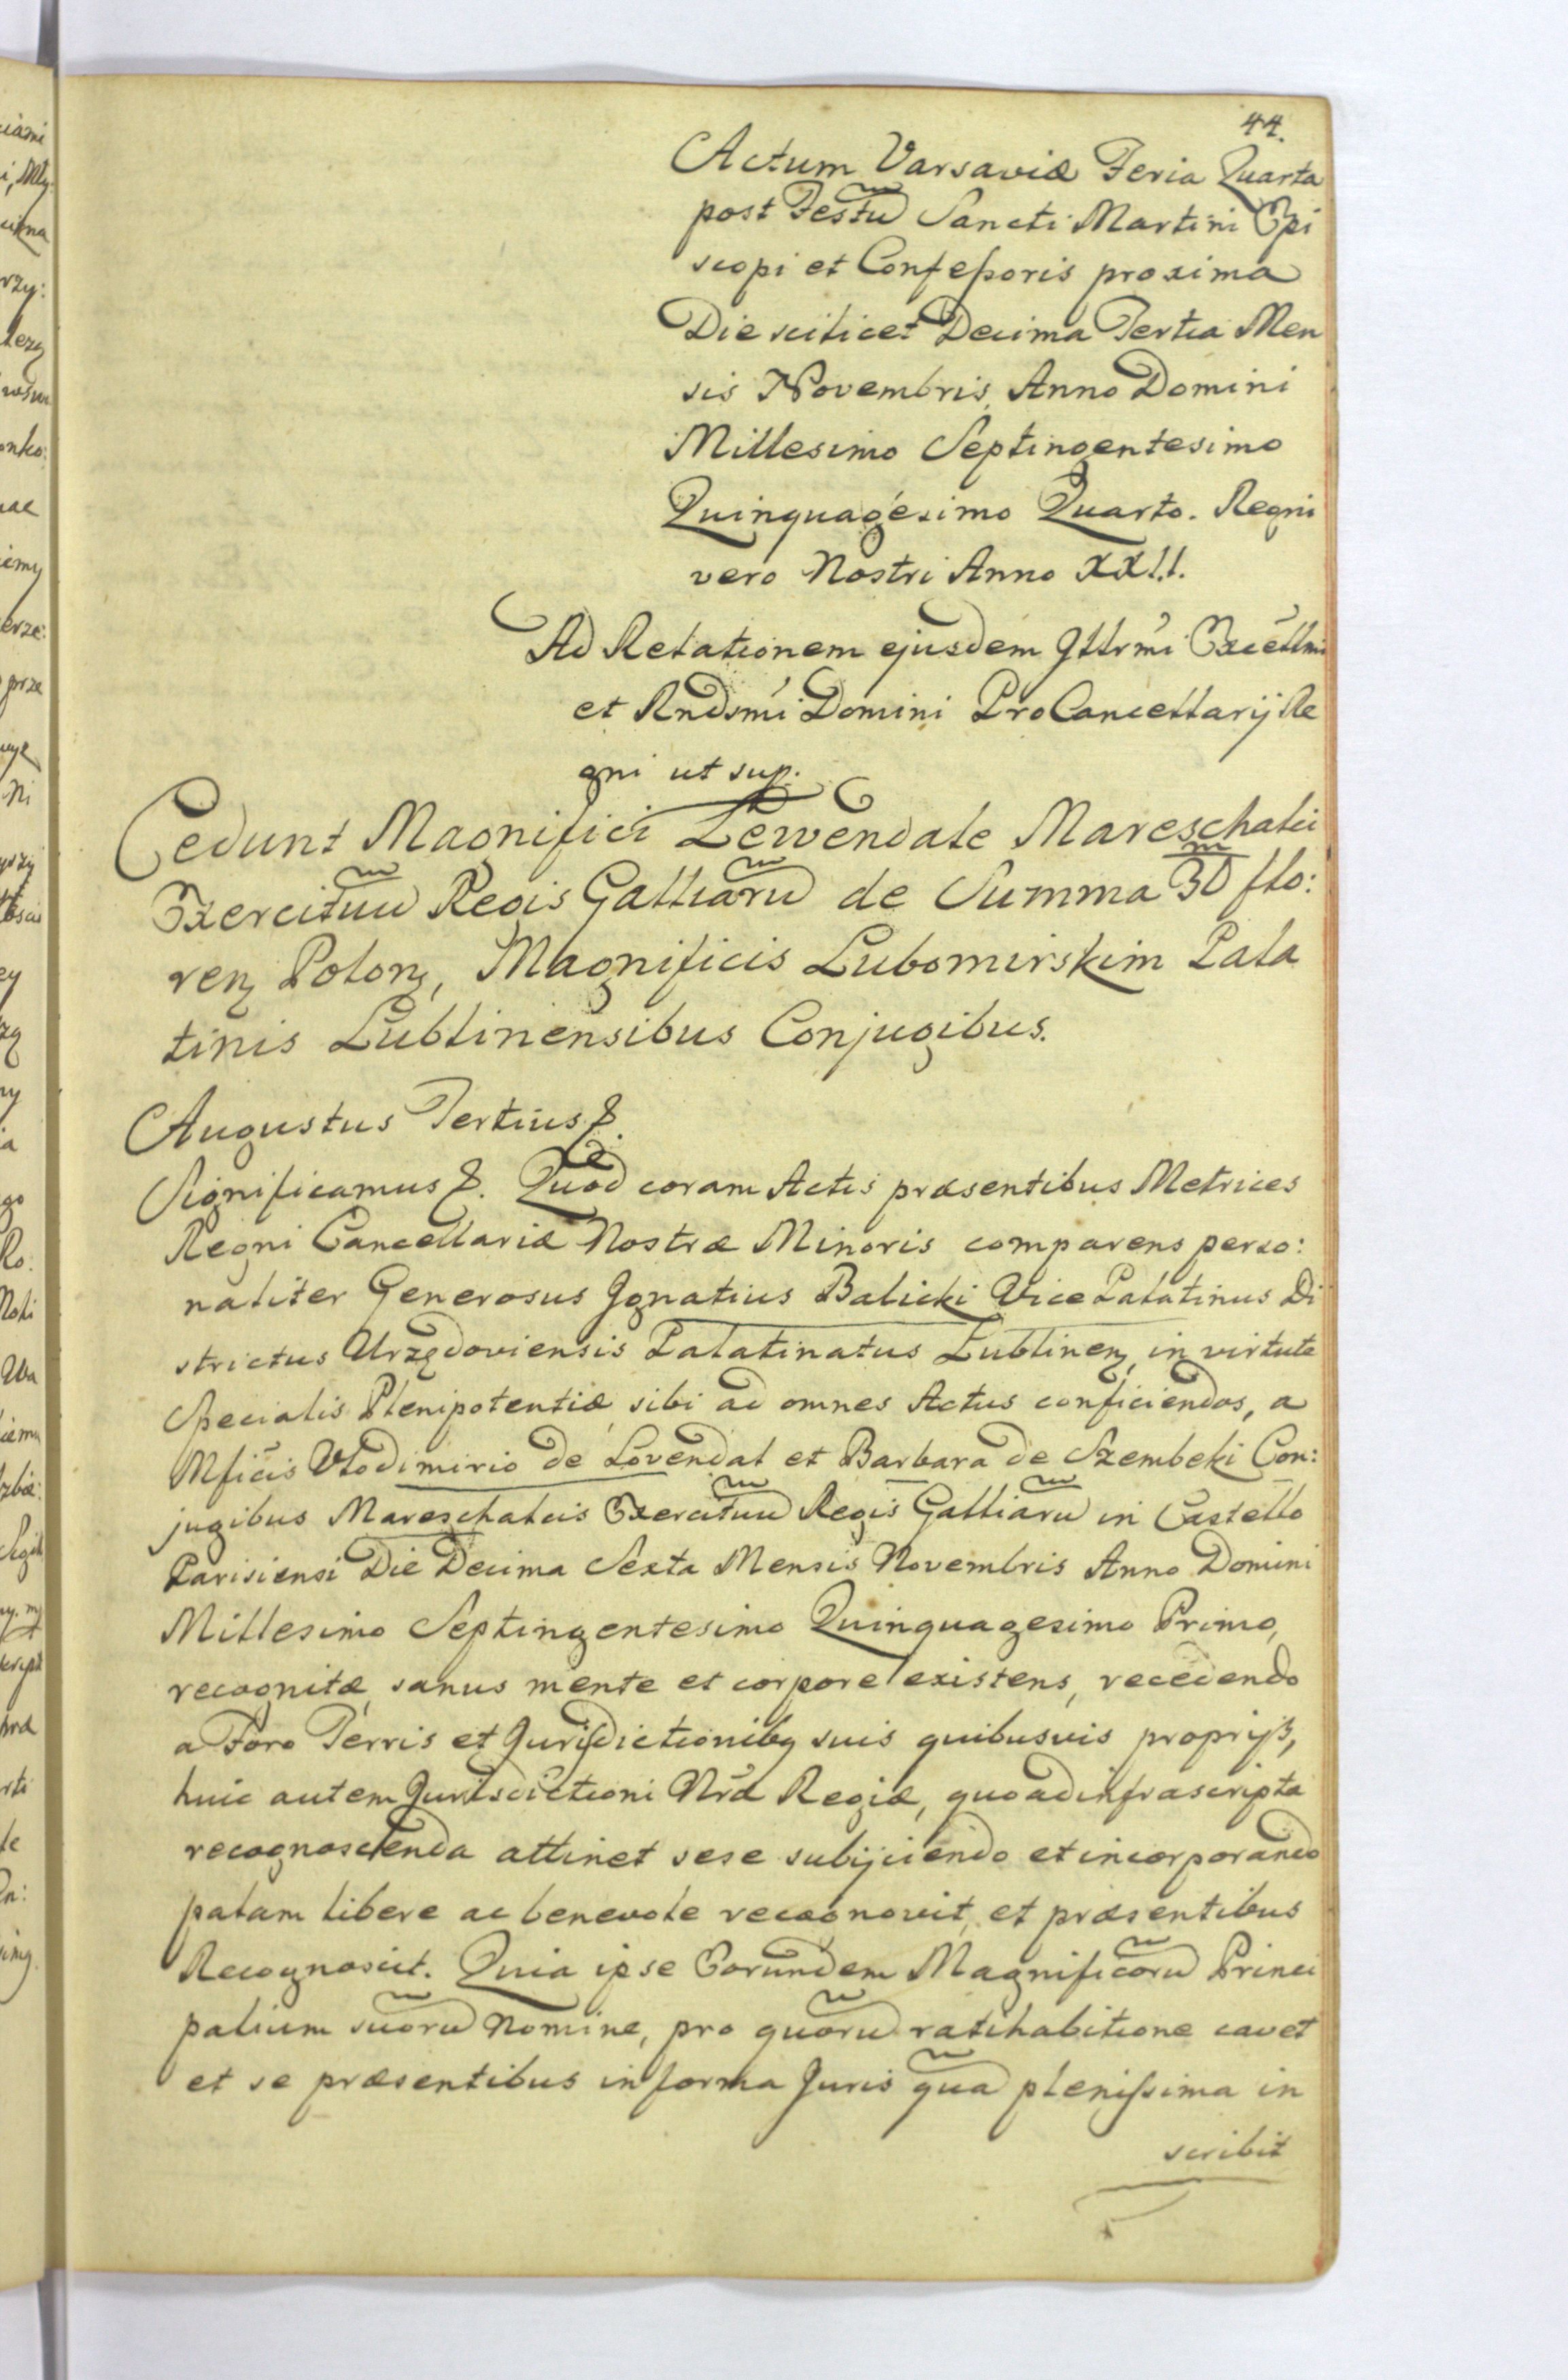 44.
Actum Varsaviæ Feria Quarta
post Festũ Sancti Martini Epi
scopi et Confeßoris proxima
Die scilicet Decima Tertia Men
sis Novembris, Anno Domini
Millesimo Septingentesimo
Quinquagesimo Quarto. Regni
vero Nostri Anno XXII.
Ad Relationem ejusdem Illrmi Excellmi
et Rndsmi Domini ProCancellarij Re
gni ut sup.
Cedunt Magnifici Lewendale Mareschalci
Exercituũ Regis Galliarũ de Summa 30 flo:
renz Polonz, Magnificis Lubomirskim Pala
tinis Lublinensibus Conjugibus.
Augustus Tertius &.
Significamus &. Quod coram Actis præsentibus Metrices
Regni Cancellariæ Nostræ Minoris comparens perso:
naliter Generosus Ignatius Balicki Vice Palatinus Di
strictus Urzędoviensis Palatinatus Lublinenz, in virtute
Specialis Plenipotentiæ, sibi ad omnes Actus conficiendos, a
Mficis Vlodimirio de Lovendal et Barbara de Szembeki Con:
jugibus Mareschalcis Exercituũ Regis Galliarũ in Castello
Parisiensi Die Decima Sexta Mensis Novembris Anno Domini
Millesimo Septingentesimo Quinquagesimo Primo,
recognitæ, sanus mente et corpore existens, recedendo
a Foro Terris et Jurisdictionibq suis quibusvis proprijs,
huic autem Jurisdictioni Nræ Regiæ, quoad infrascripta
recognoscenda attinet sese subijciendo et incorporando
palam libere ac benevole recognovit, et præsentibus
Recognoscit. Quia ipse Eorundem Magnificorũ Princi
palium suorũ Nomine, pro quorũ ratihabitione cavet
et se præsentibus in forma Juris qua plenißima in
scribit